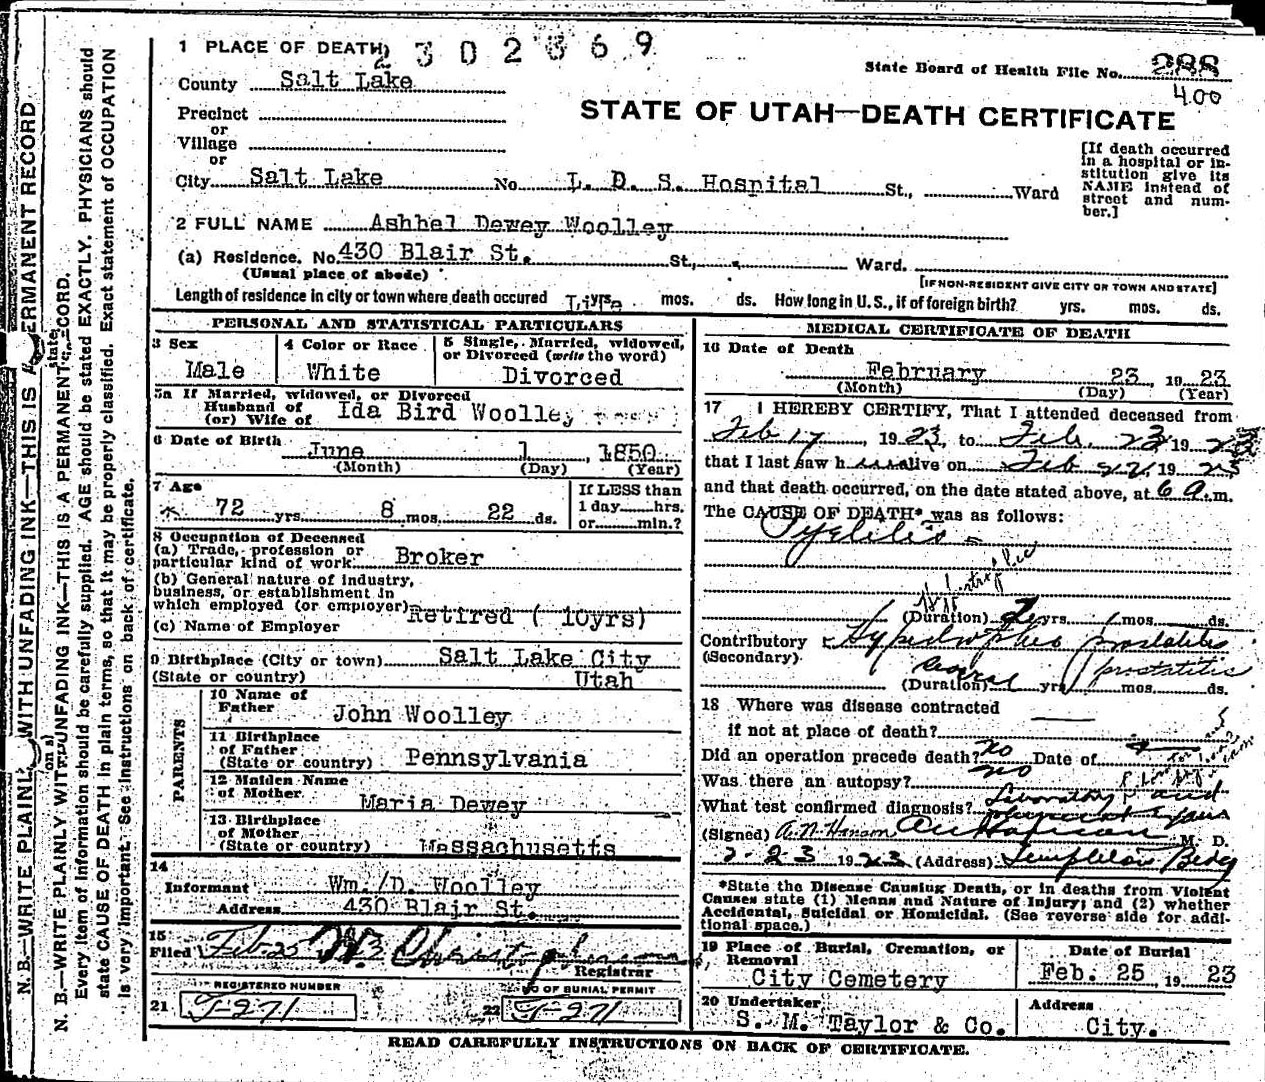 N. B.—WRITE PLAINLY WITH UNFADING INK—THIS IS A PERMANENT RECORD
N. B.—WRITE PLAINLY WITH UNFADING INK—THIS IS A PERMANENT RECORD.
Every item of information should be carefully supplied. AGE should be stated EXACTLY, PHYSICIANS should
state CAUSE OF DEATH in plain terms, so that it may be properly classified. Exact statement of OCCUPATION
is very important. See instructions on back of certificate.
1 PLACE OF DEATH
2302369
State Board of Health File No. 288
400
County Salt Lake
STATE OF UTAH—DEATH CERTIFICATE
Precinct
or
Village
or
City Salt Lake No. L. D. S. Hospital St., Ward
[If death occurred
in a hospital or in-
stitution give its
NAME instead of
street and num-
ber.]
2 FULL NAME Ashbel Dewey Woolley
(a) Residence. No. 430 Blair St. St., Ward.
(Usual place of abode)
[IF NON-RESIDENT GIVE CITY OR TOWN AND STATE]
Length of residence in city or town where death occured Life mos. ds. How long in U. S., if of foreign birth? yrs. mos. ds.
PERSONAL AND STATISTICAL PARTICULARS
3 Sex
Male
4 Color or Race
White
5 Single, Married, widowed,
or Divorced (write the word)
Divorced
5a If Married, widowed, or Divorced
Husband of
(or) Wife of Ida Bird Woolley
6 Date of Birth
June 1, 1850
(Month) (Day) (Year)
7 Age
72 yrs. 8 mos. 22 ds.
If LESS than
1 day hrs.
or min.?
8 Occupation of Deceased
(a) Trade, profession or
particular kind of work Broker
(b) General nature of industry,
business, or establishment in
which employed (or employer) Retired ( 10yrs)
(c) Name of Employer
9 Birthplace (City or town) Salt Lake City
(State or country) Utah
PARENTS
10 Name of
Father John Woolley
11 Birthplace
of Father
(State or country) Pennsylvania
12 Maiden Name
of Mother Maria Dewey
13 Birthplace
of Mother
(State or country) Massachusetts
14
Informant Wm. D. Woolley
Address 430 Blair St.
15
Filed Feb 25 Christopherson
Registrar
REGISTERED NUMBER
21 J-271
NO OF BURIAL PERMIT
22 J-271
MEDICAL CERTIFICATE OF DEATH
16 Date of Death
February 23, 1923
(Month) (Day) (Year)
17 I HEREBY CERTIFY, That I attended deceased from
Feb 17, 1923, to Feb. 23 1923
that I last saw h im alive on Feb 22 1923
and that death occurred, on the date stated above, at 6 a.m.
The CAUSE OF DEATH* was as follows:
Pyelitis
(Duration) 2 yrs. mos. ds.
Contributory Hypertrophied prostatitis
(Secondary) prostatitis
(Duration) Several yrs mos. ds.
18 Where was disease contracted
if not at place of death?
Did an operation precede death? no Date of
Was there an autopsy? no
What test confirmed diagnosis? Laboratory and
physical exams
(Signed) A. N. Hanson M. D.
2-23 1923 (Address) Templeton Bldg
*State the Disease Causing Death, or in deaths from Violent
Causes state (1) Means and Nature of Injury; and (2) whether
Accidental, Suicidal or Homicidal. (See reverse side for addi-
tional space.)
19 Place of Burial, Cremation, or
Removal
City Cemetery
Date of Burial
Feb. 25, 1923
20 Undertaker
S. M. Taylor & Co.
Address
City.
READ CAREFULLY INSTRUCTIONS ON BACK OF CERTIFICATE.